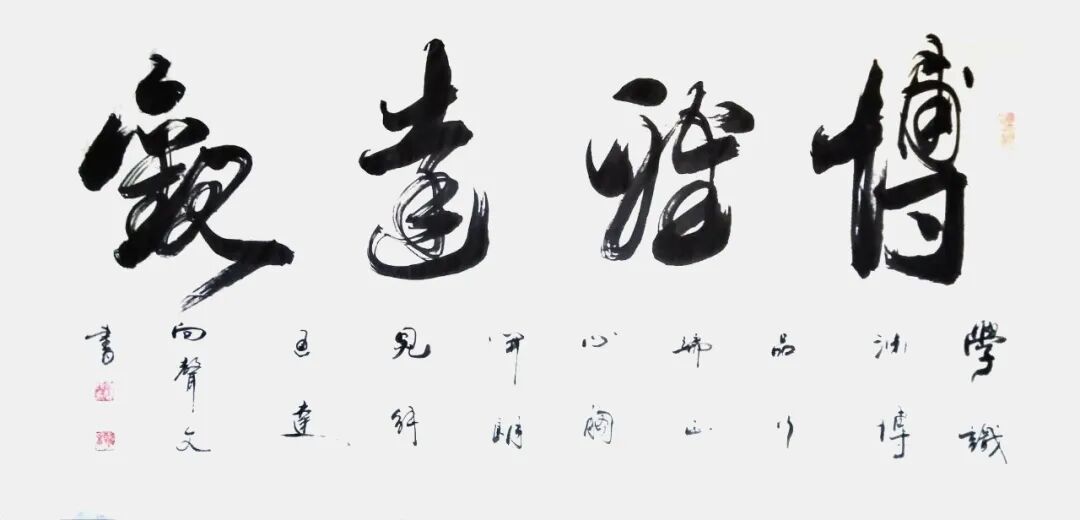 博雅達觀
學識
淵博
品行
端正
心胸
開朗
見解
通達
向聲文
書